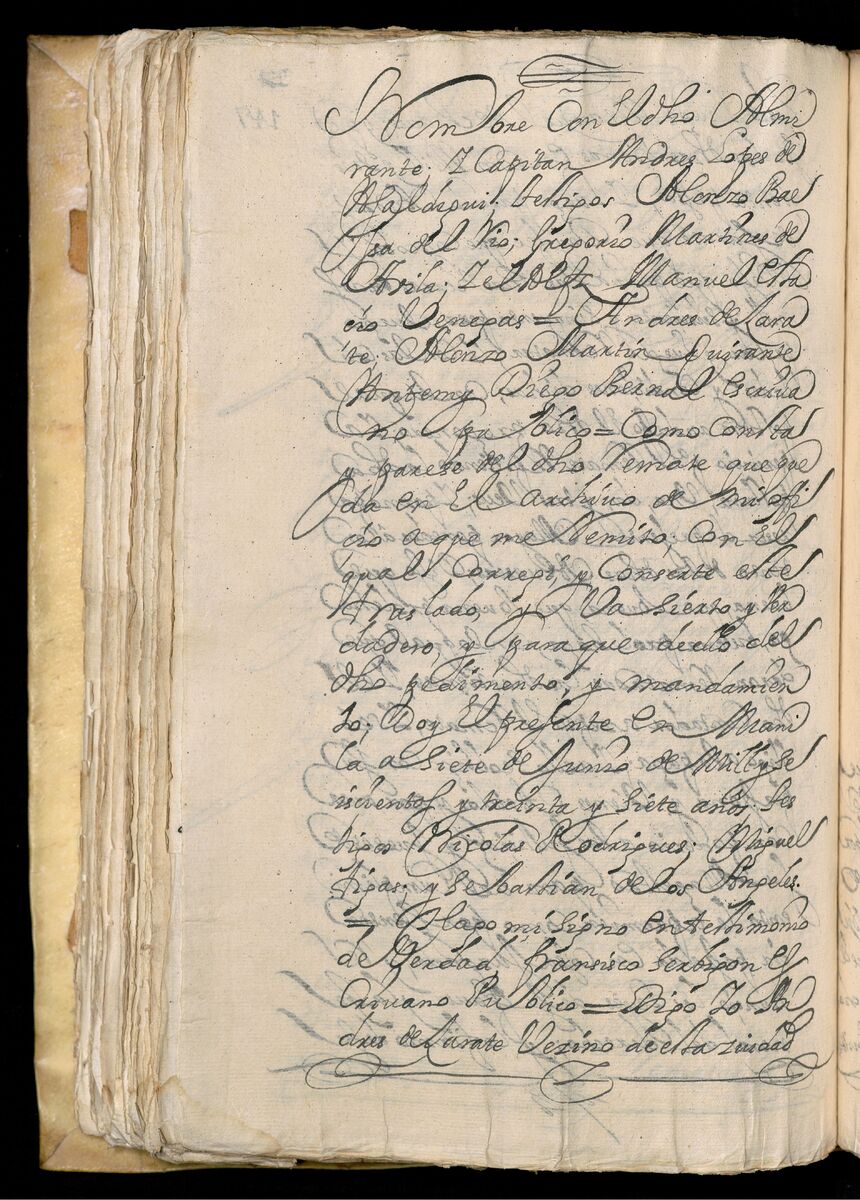 Nombre Con El dho Almi
rante; Y Capitan Andres Lopes de
Asaldigui. testigos Alonzo Bae
sa del Rio; Gregorio Martines de
Avila; Y el Alfz Manuel Esta
cio Venegas = Andres de Zara
te. Alonzo Martin Quirante
Antemy Diego Bernal escriva
no publico = Como Consta
y parese del dho Remate que que
da en El archivo de mi offi
cio a que me Remito, Con El
qual Corregi, y Conserte este
traslado, y Va sierto y Ver
dadero, y para que de ello del
dho pedimento, y mandamien
to; Doy El presente en Mani
la a Siete de Junio de Mill y se
iscientos y treinta y siete años. tes
tigos Nicolas Rodrigues; Miguel
tigas; y Sebastian de los Angeles.
= Hago mi signo en testimonio
de Verdad, fransisco serbigon es
Crivano Publico = Digo Yo An
dres de Zarate Vezino de esta ziudad